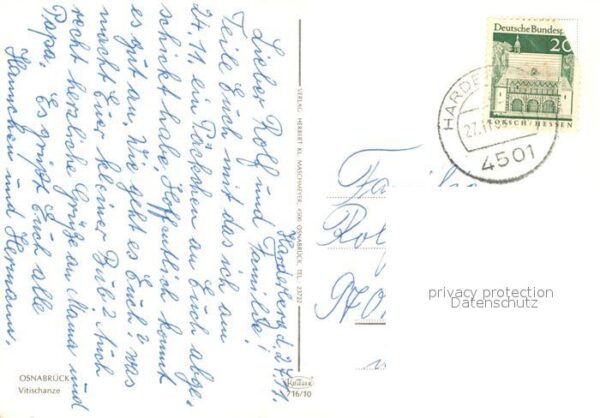 Hardeberg, d. 27.11.
Lieber Rolf und Familie!
Teile Euch mit das ich am
24.11. ein Päckchen an Euch abge-
schickt habe, Hoffentlich kommt
es gut an. Wie geht es Euch? was
macht Euer kleiner Bub? Auch
recht herzliche Grüße an Mama und
Papa. Es grüßt Euch alle
Hannchen und Hermann.
OSNABRÜCK
Vitischanze
VERLAG HERBERT KL. MASCHMEYER, 4500 OSNABRÜCK, TEL. 23722
Krüger
716/10
Deutsche Bundesp
20
LORSCH/HESSEN
HARDE
27.11
4501
Rol
970
privacy protection
Datenschutz